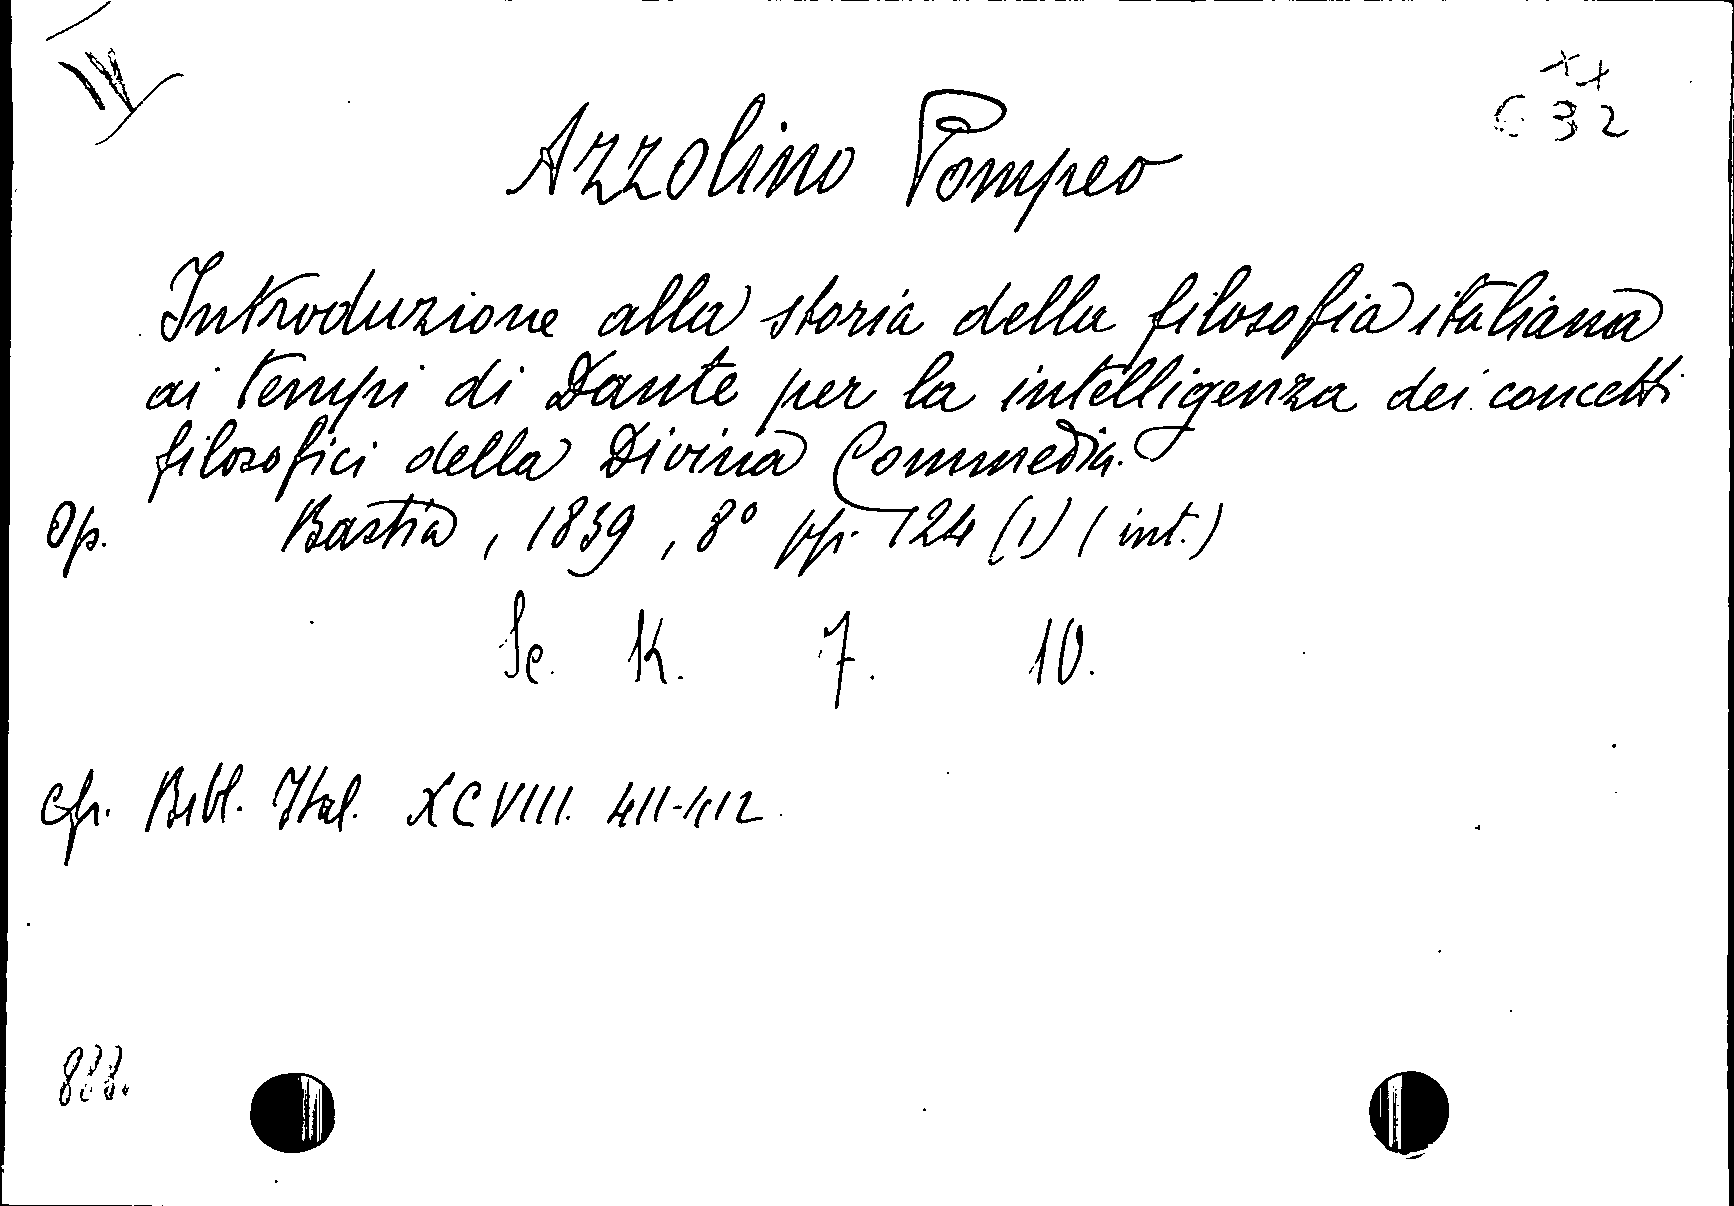 632
Azzolino Pompeo
Introduzione alla storia della filosofia italiana
ai tempi di Dante per la intelligenza dei concetti
filosofici della Divina Commedia.
Op. Bastia, 1839, 8° pp. 124 (1) (int.)
Sc. K. 7. 10.
Cfr. Bibl. Ital. XCVIII. 411-412